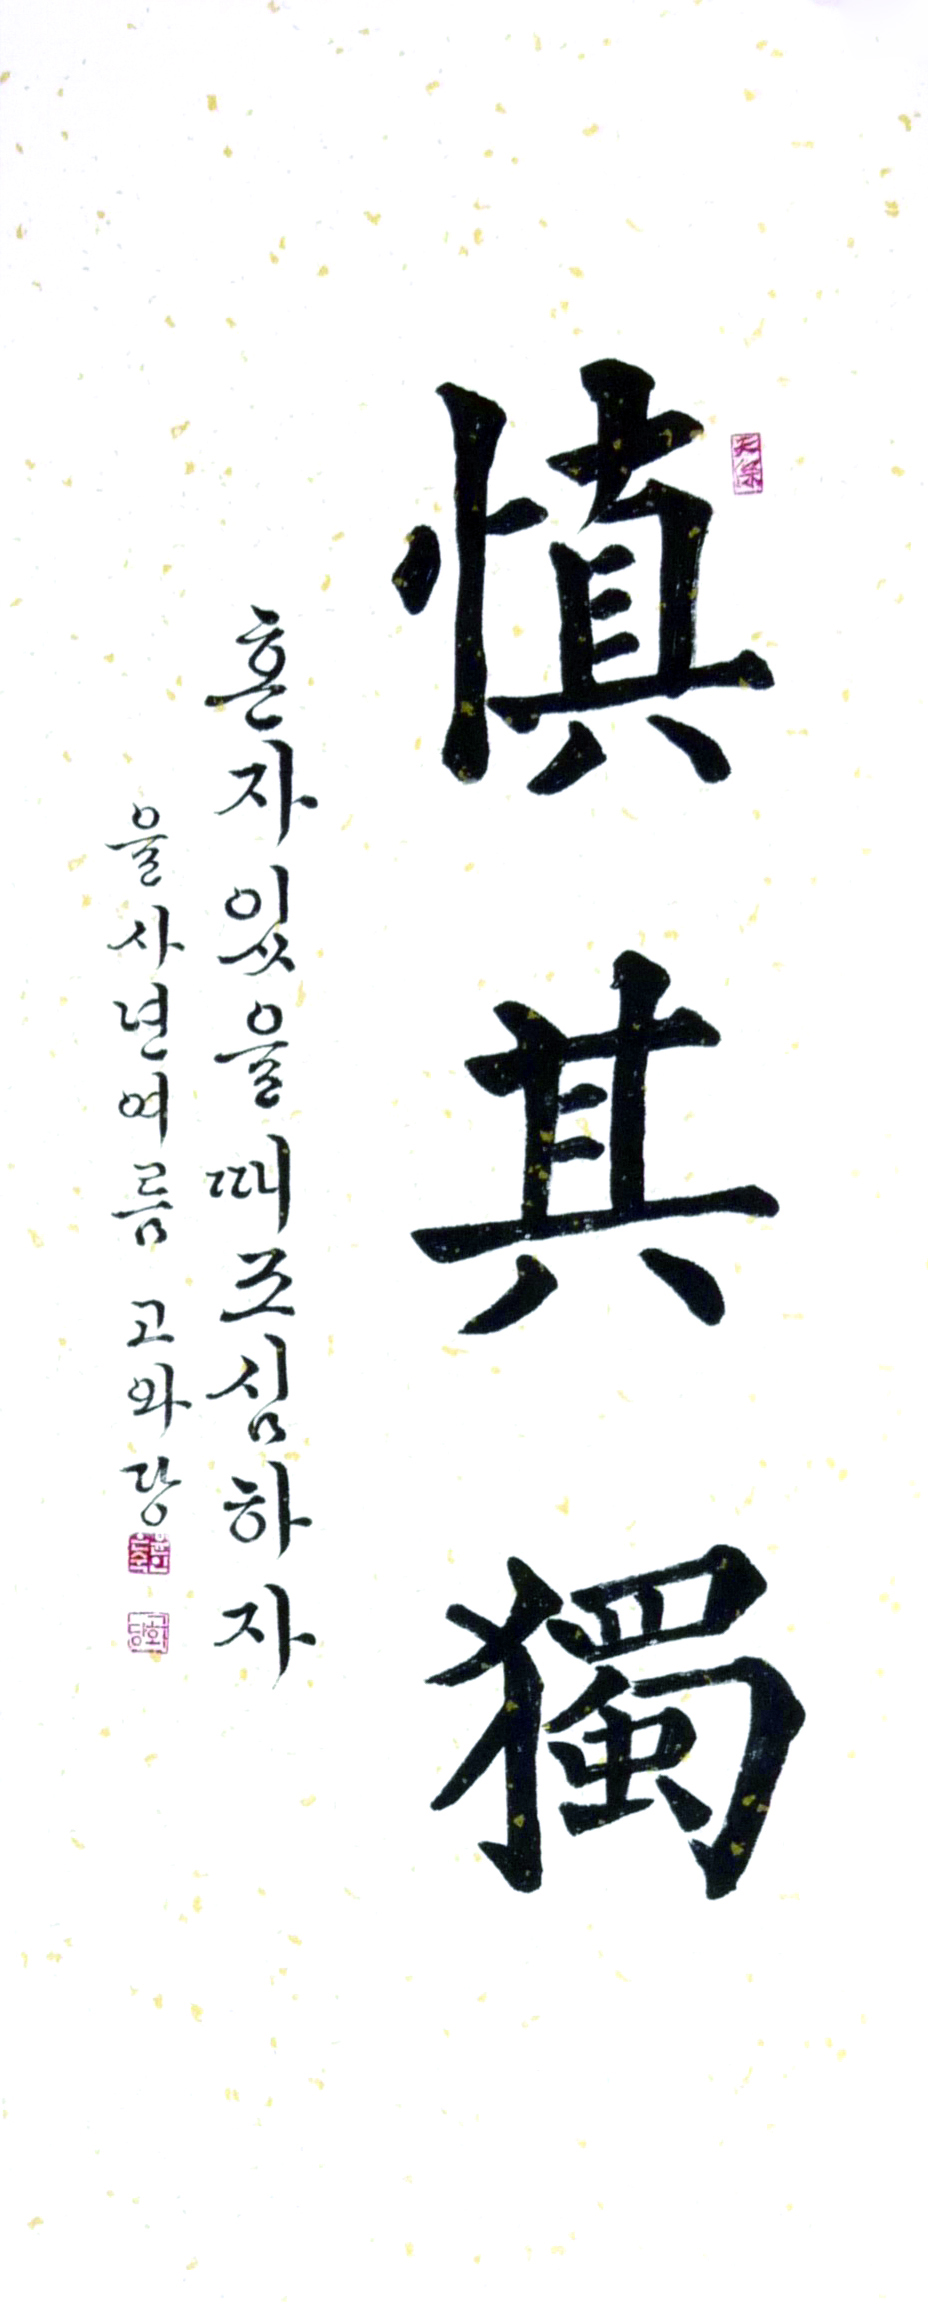 慎其獨
혼자 있을 때 조심하자
을사년 여름 고와당